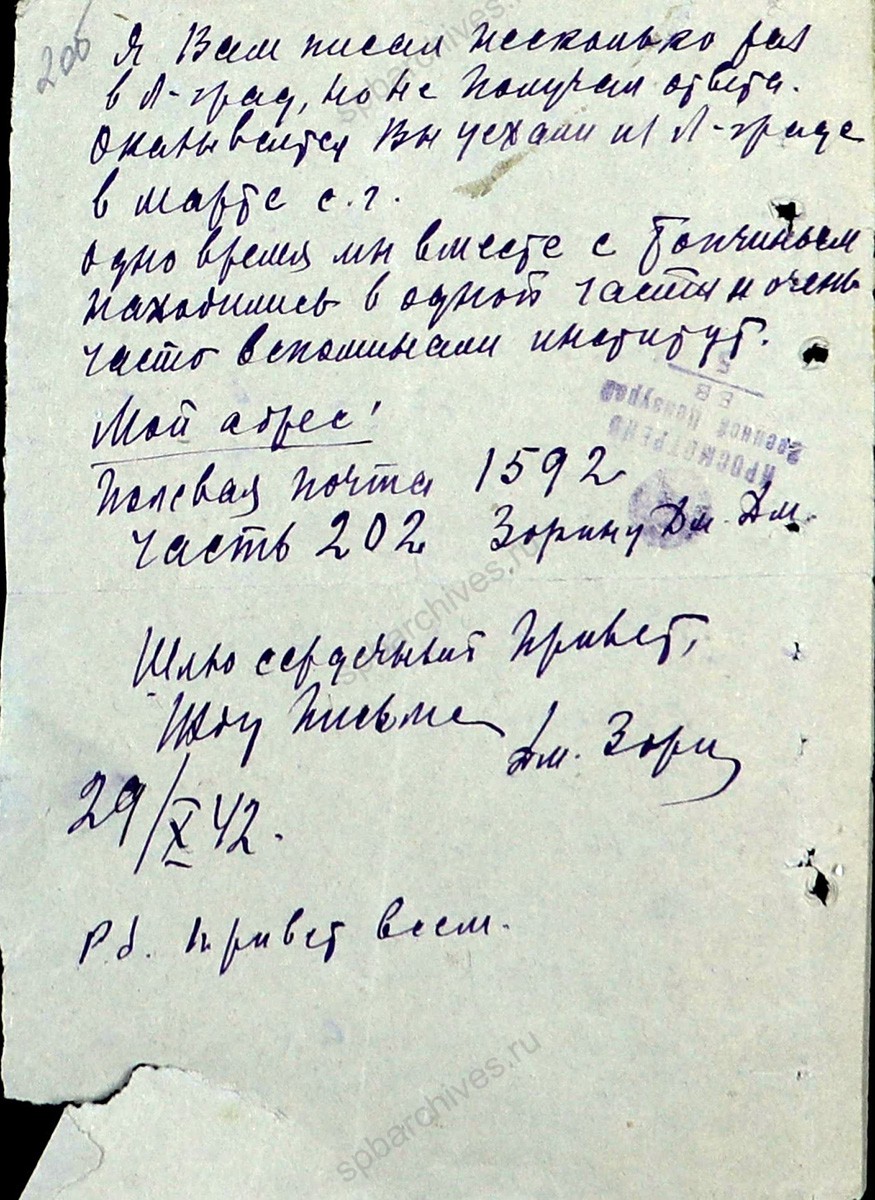 205
Я Вам писал несколько раз
в Л-град, но не получал ответа.
Оказывается Вы уехали из Л-града
в марте с.г.
Одно время мы вместе с
находились в одной части и очень
часто вспоминали институт.
Мой адрес!
Полевая почта 1592
часть 202 Зорину Дм. Дм.
ПРОСМОТРЕНО
Военной Цензурой
Шлю сердечный привет,
Жду письма
Дм. Зорин
29/X 42.
P.S. Привет всем.
spbarchives.ru
spbarchives.ru
spbarchives.ru